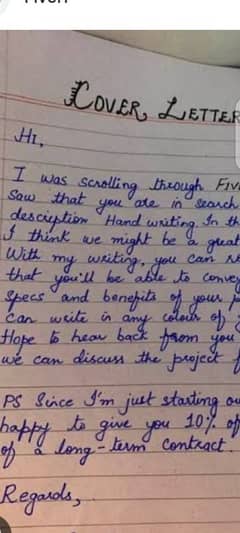 COVER LETTER
Hi,
I was scrolling through
Saw that you are in search
description Hand writing. In
I think we might be a great
With my writing, you can
that you'll be able to convey
Specs and benefits of your
Can write in any colour of
Hope to hear back from you
we can discuss the project
PS Since I'm just starting
happy to give you 10% of
of a long-term contract.
Regards,